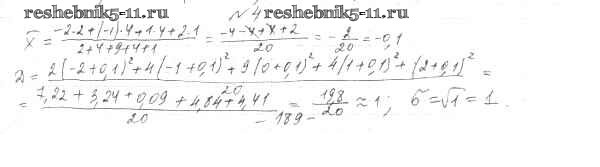 reshebnik5-11.ru № 4 reshebnik5-11.ru
x̄ = (-2·2+(-1)·4+1·4+2·1)/(2+4+9+4+1) = (-4-4+4+2)/20 = -2/20 = -0,1
D = (2(-2+0,1)²+4(-1+0,1)²+9(0+0,1)²+4(1+0,1)²+(2+0,1)²)/20 =
= (7,22+3,24+0,09+4,84+4,41)/20 = 19,8/20 ≈ 1; σ=√1=1.
- 189 -